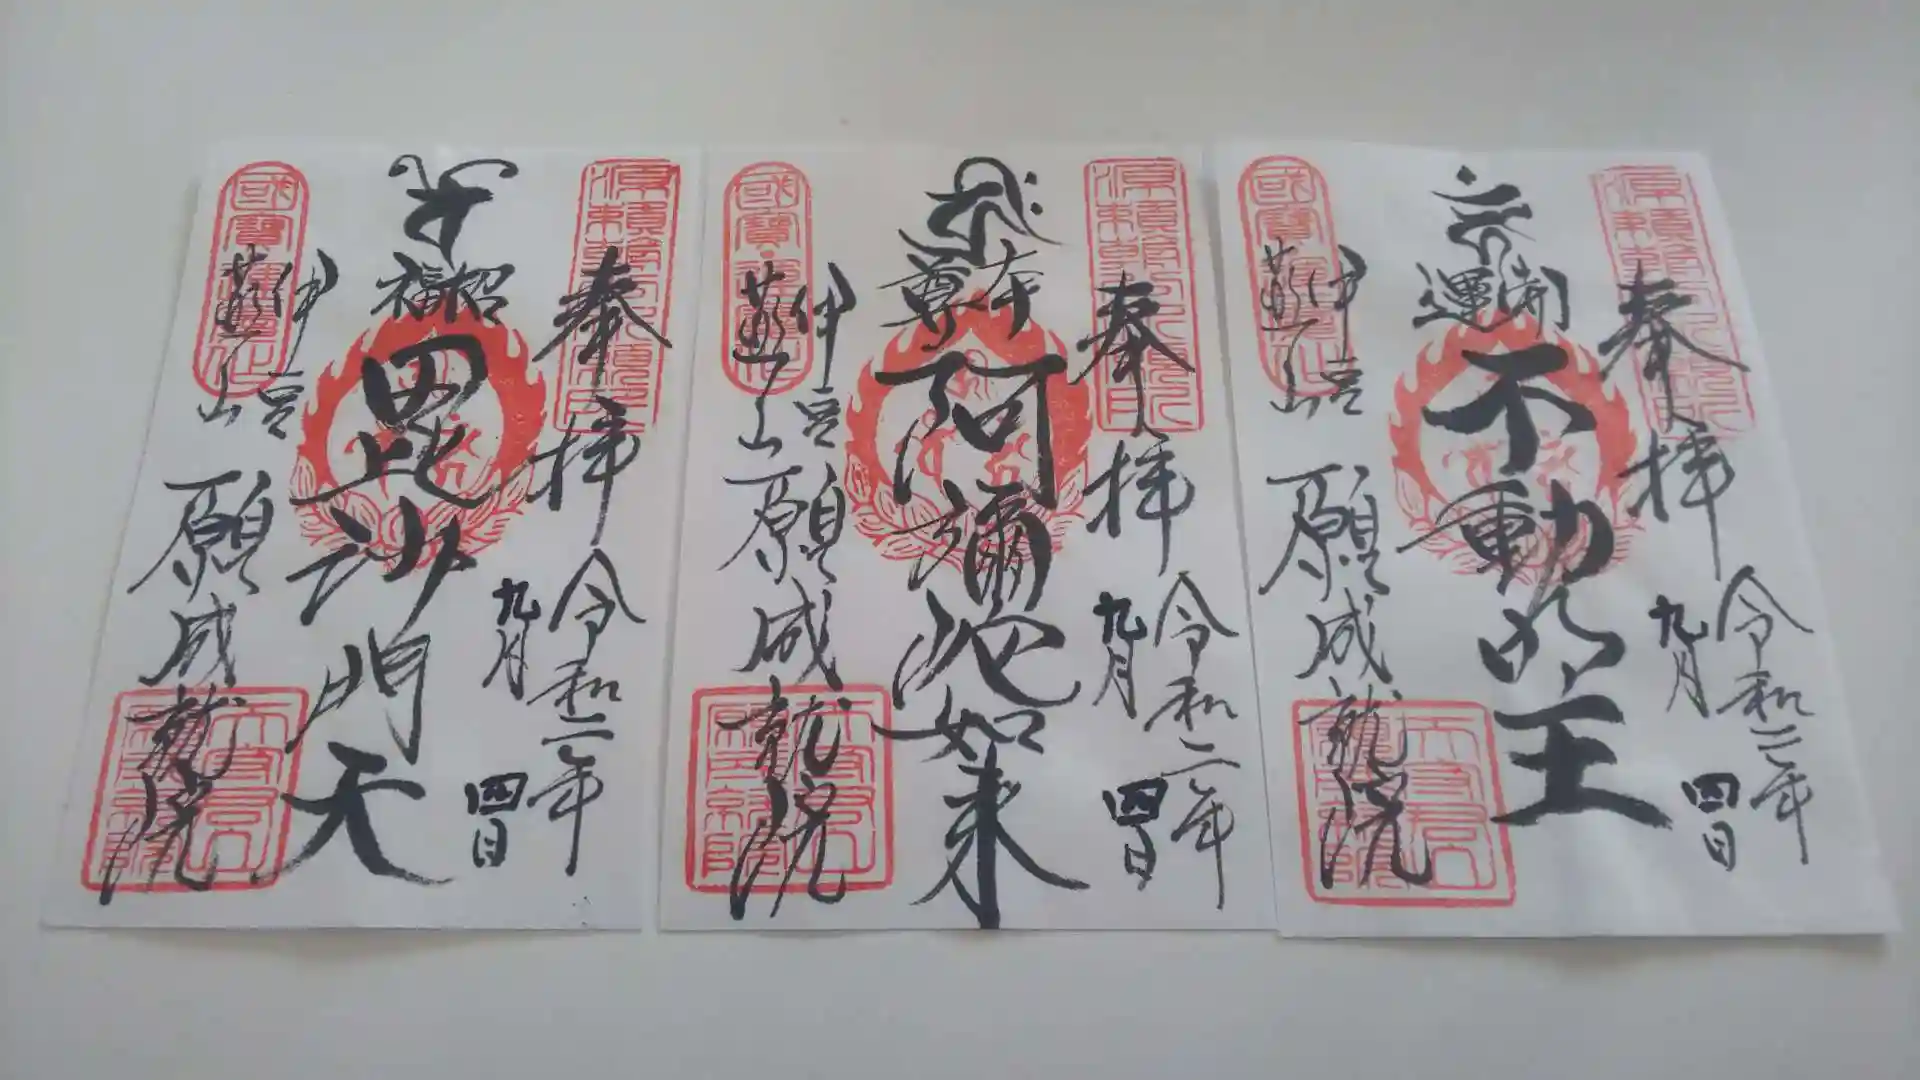 奉拝
令和二年
九月
四日
招福
毘沙門天
國寶運慶作
伊豆
韮山
願成就院
奉拝
令和二年
九月
四日
本尊
阿彌陀如来
國寶運慶作
伊豆
韮山
願成就院
奉拝
令和二年
九月
四日
開運
不動明王
國寶運慶作
伊豆
韮山
願成就院